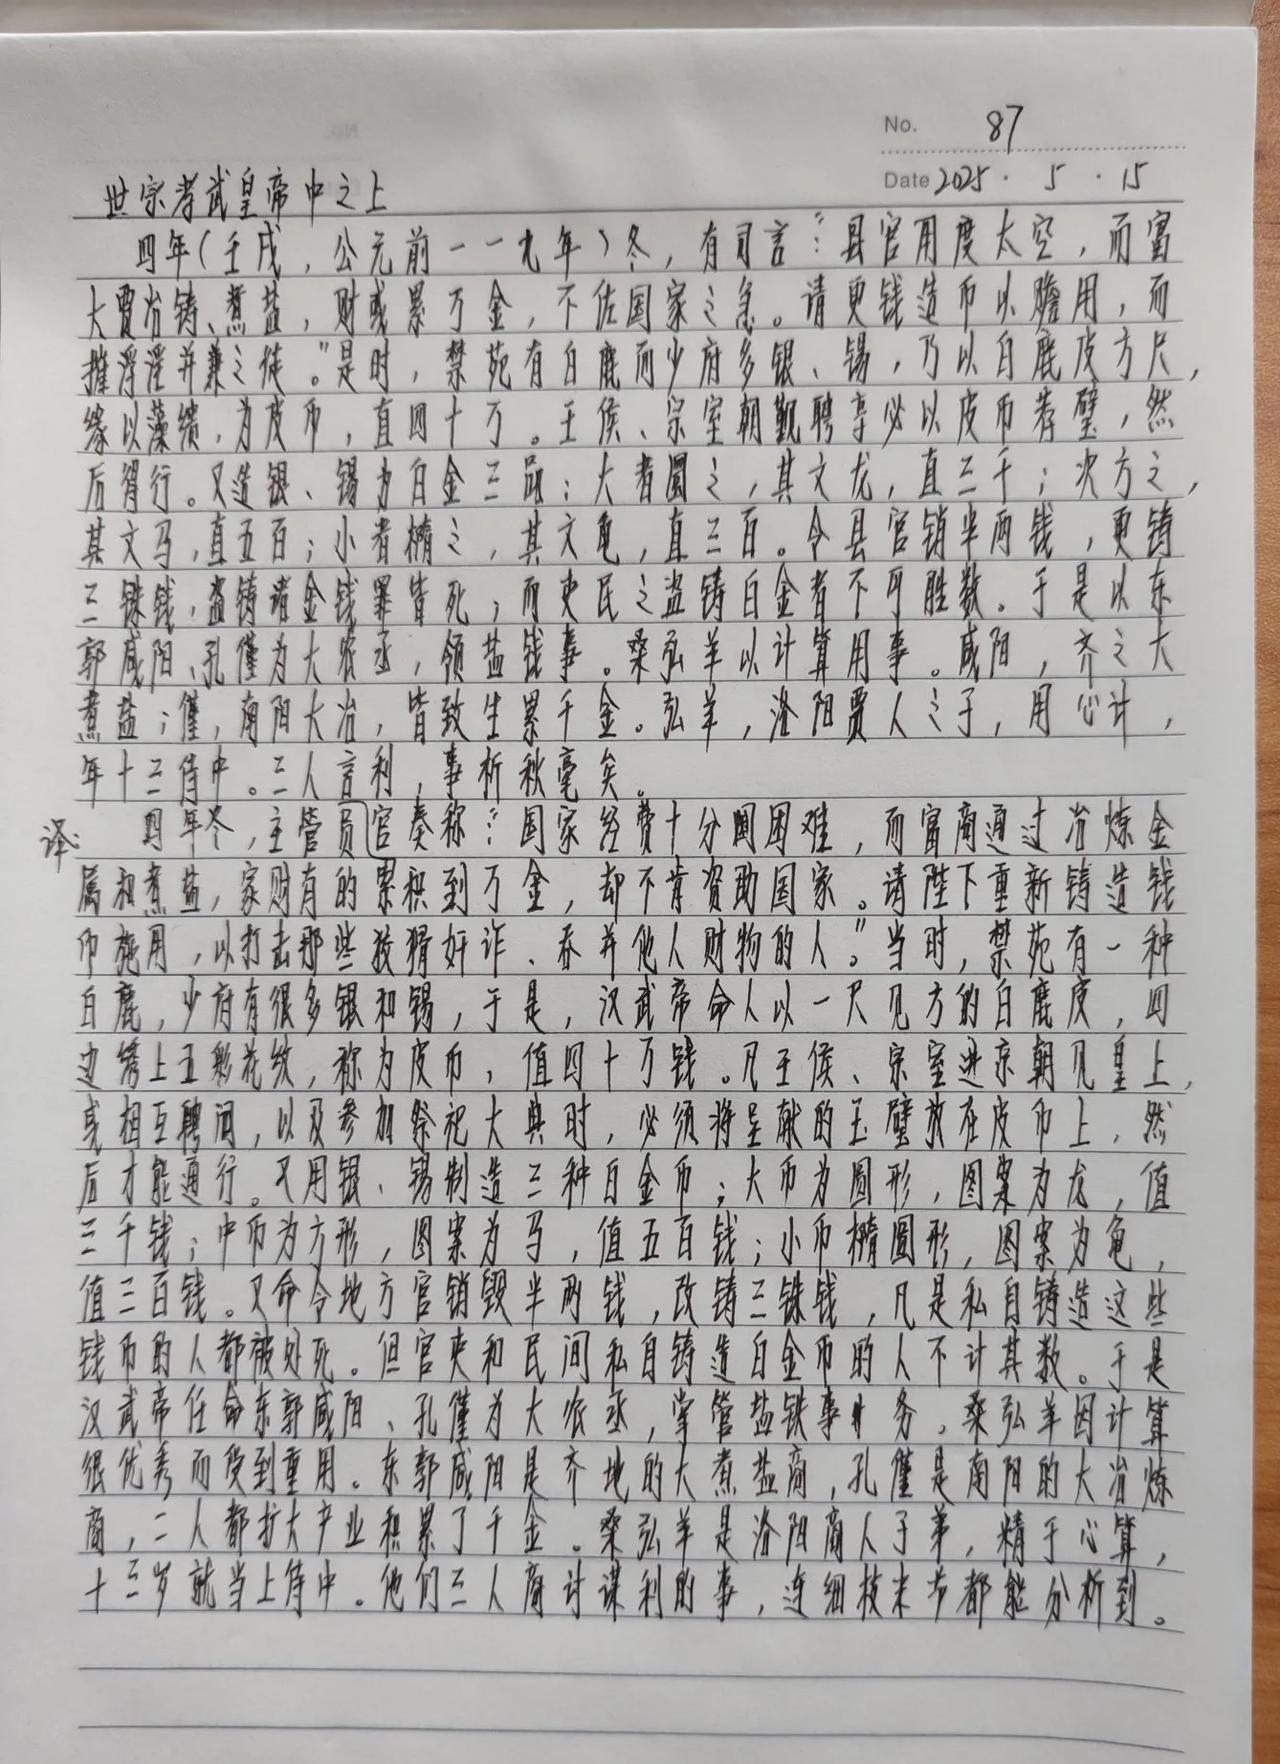 No. 87
Date 2025 · 5 · 15
世宗孝武皇帝中之上
四年(壬戌，公元前一一九年)冬，有司言："县官用度太空，而富
大贾冶铸、煮盐，财或累万金，不佐国家之急。请更钱造币以赡用，而
摧浮淫并兼之徒。"是时，禁苑有白鹿而少府多银、锡，乃以白鹿皮方尺，
缘以藻缋，为皮币，直四十万。王侯、宗室朝觐聘享必以皮币荐璧，然
后得行。又造银、锡为白金三品：大者圜之，其文龙，直三千；次方之，
其文马，直五百；小者椭之，其文龟，直三百。令县官销半两钱，更铸
三铢钱，盗铸诸金钱罪皆死，而吏民之盗铸白金者不可胜数。于是以东
郭咸阳、孔仅为大农丞，领盐钱事。桑弘羊以计算用事。咸阳，齐之大
煮盐；仅，南阳大冶，皆致生累千金。弘羊，洛阳贾人之子，用心计，
年十三侍中。三人言利，事析秋毫矣。
译:
四年冬，主管员官奏称："国家经费十分困难，而富商通过冶炼金
属和煮盐，家财有的累积到万金，却不肯资助国家。请陛下重新铸造钱
币施用，以打击那些狡猾奸诈、吞并他人财物的人。"当时，禁苑有一种
白鹿，少府有很多银和锡，于是，汉武帝命人以一尺见方的白鹿皮，四
边绣上五彩花纹，称为皮币，值四十万钱。凡王侯、宗室进京朝见皇上，
或相互聘问，以及参加祭祀大典时，必须将呈献的玉璧放在皮币上，然
后才能通行。又用银、锡制造三种白金币；大币为圆形，图案为龙，值
三千钱；中币为方形，图案为马，值五百钱；小币椭圆形，图案为龟，
值三百钱。又命令地方官销毁半两钱，改铸三铢钱，凡是私自铸造这些
钱币的人都被处死。但官吏和民间私自铸造白金币的人不计其数。于是
汉武帝任命东郭咸阳、孔仅为大农丞，掌管盐铁事务。桑弘羊因计算
很优秀而受到重用。东郭咸阳是齐地的大煮盐商，孔仅是南阳的大冶炼
商，二人都扩大产业积累了千金。桑弘羊是洛阳商人子弟，精于心算，
十三岁就当上侍中。他们三人商讨谋利的事，连细枝末节都能分析到。